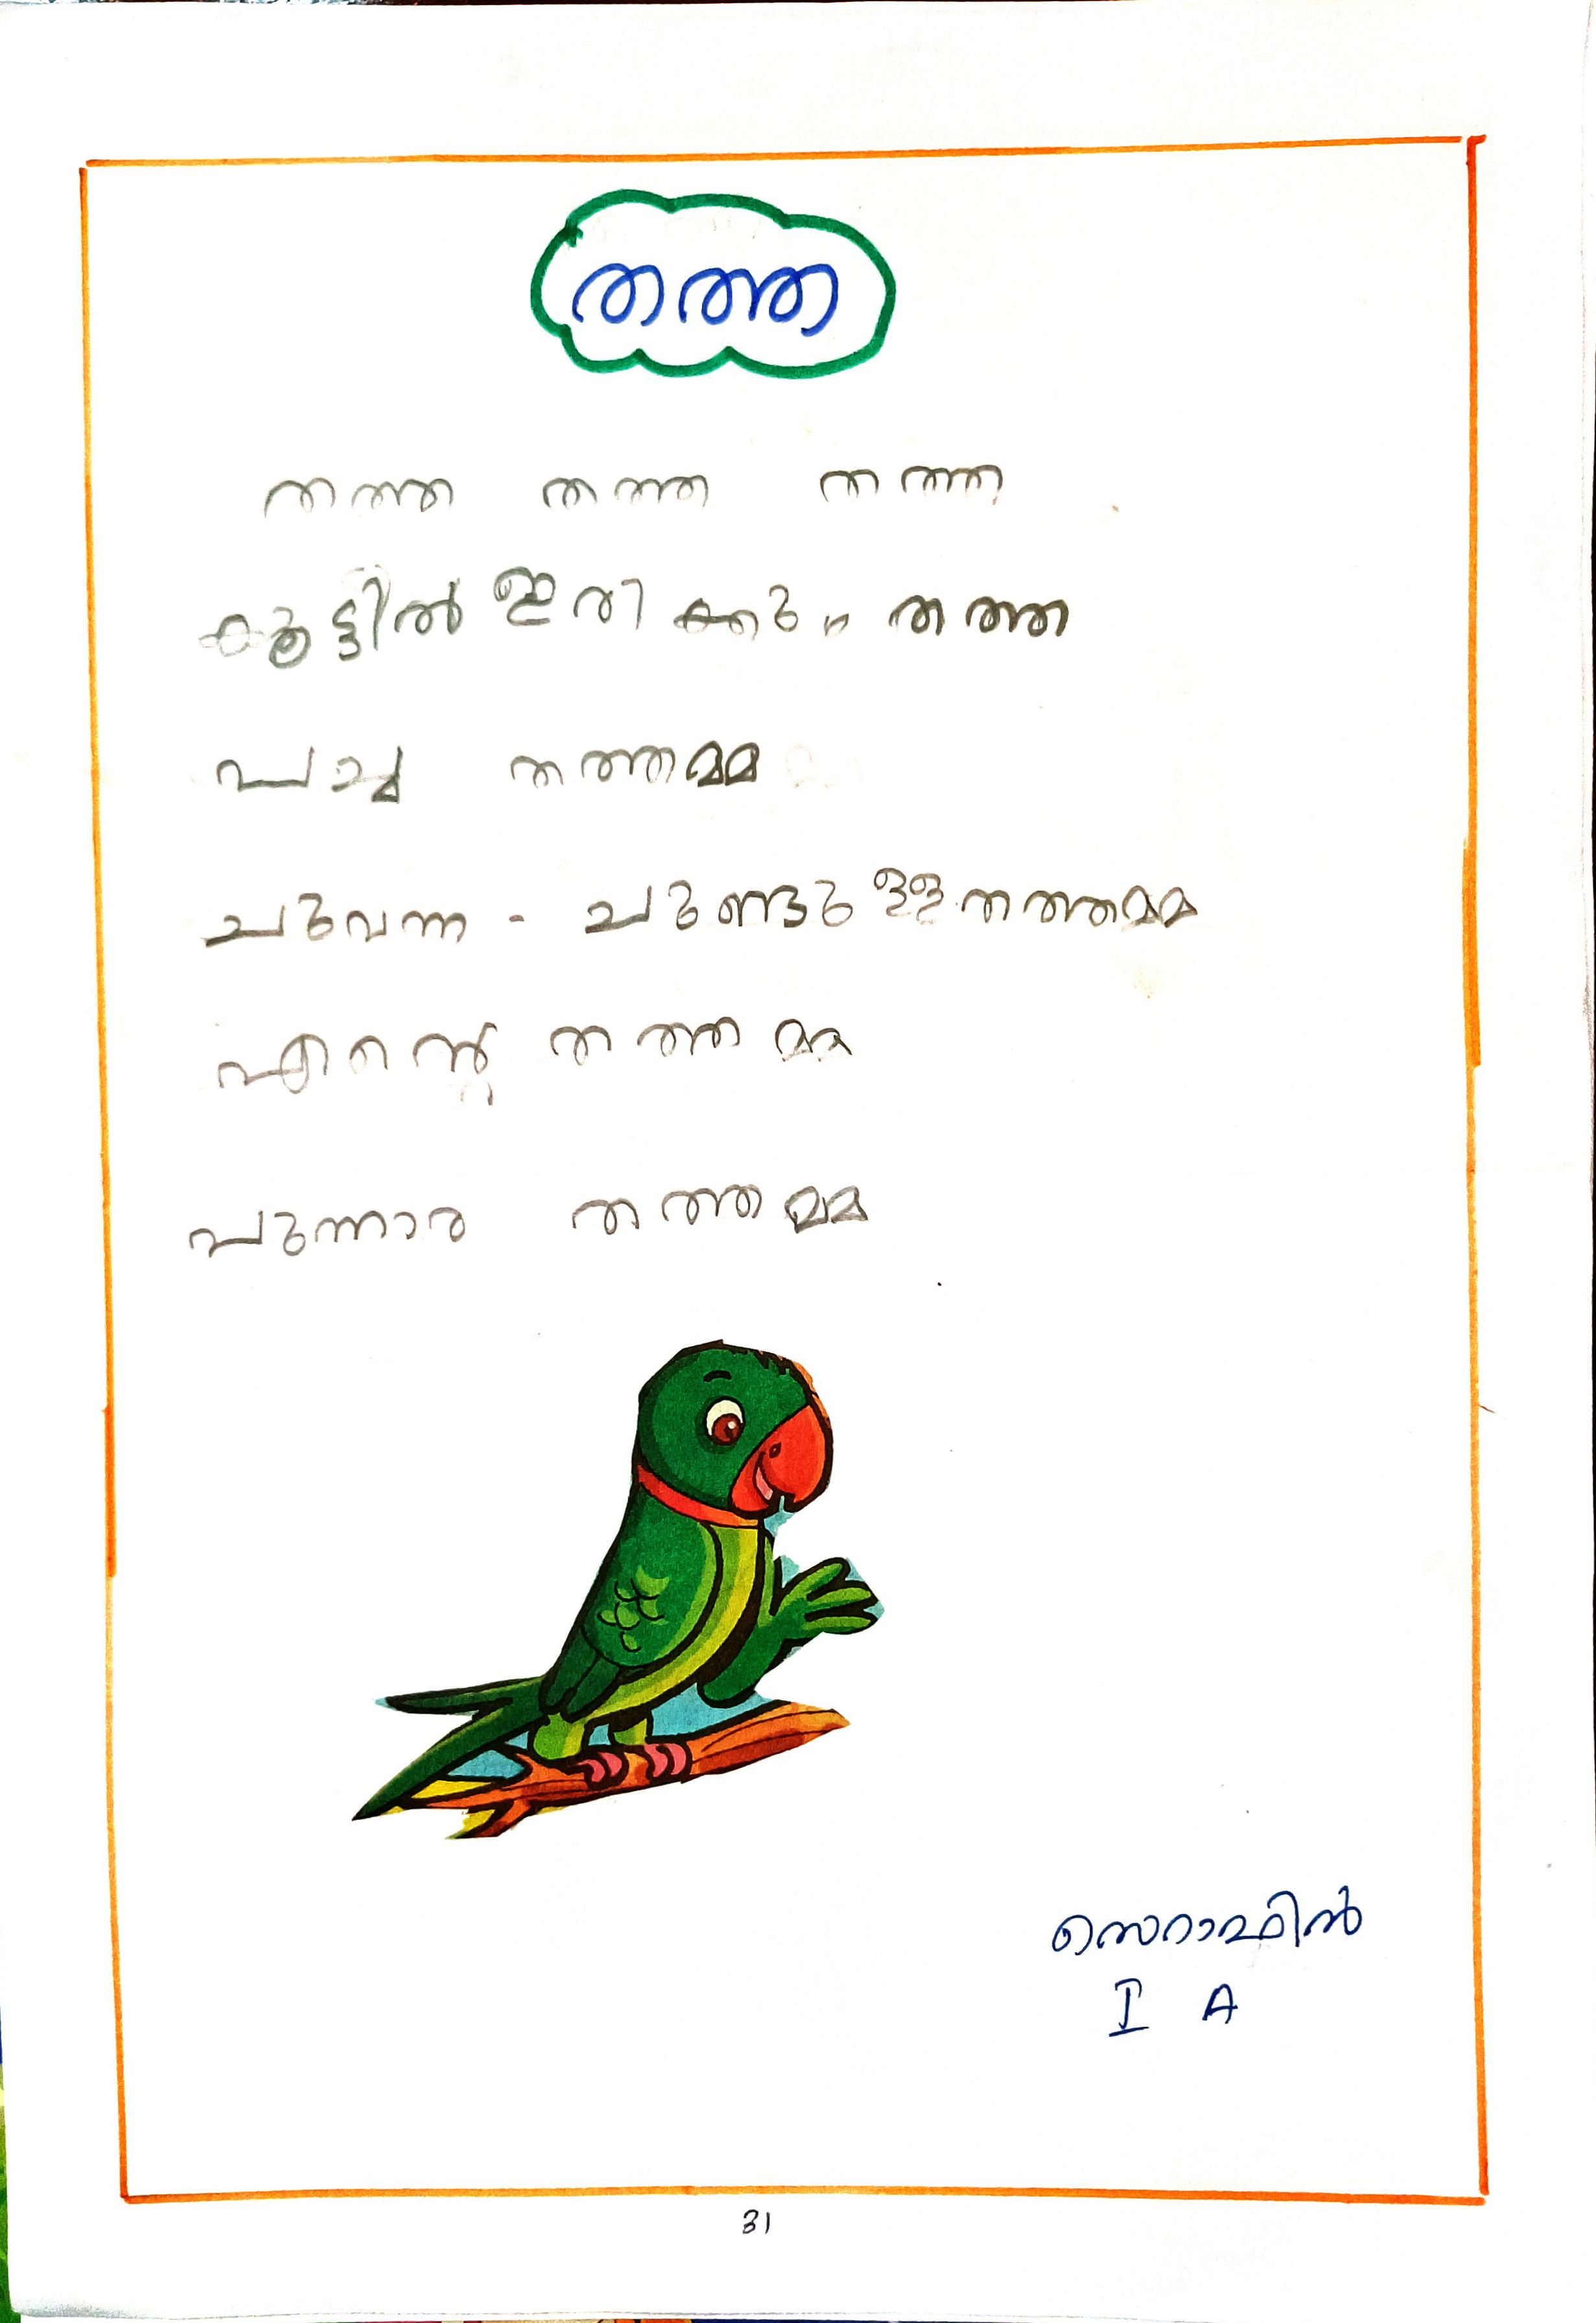 തത്ത
തത്ത തത്ത തത്ത
കൂട്ടിൽ ഇരിക്കും തത്ത
പച്ച തത്തമ്മ
ചുവന്ന - ചുണ്ടുള്ള തത്തമ്മ
എന്റെ തത്തമ്മ
പുന്നാര തത്തമ്മ
സെറാഫിൻ
I A
31